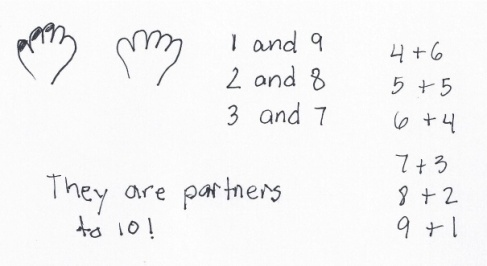 1 and 9
2 and 8
3 and 7
4 + 6
5 + 5
6 + 4
7 + 3
8 + 2
9 + 1
They are partners
to 10!